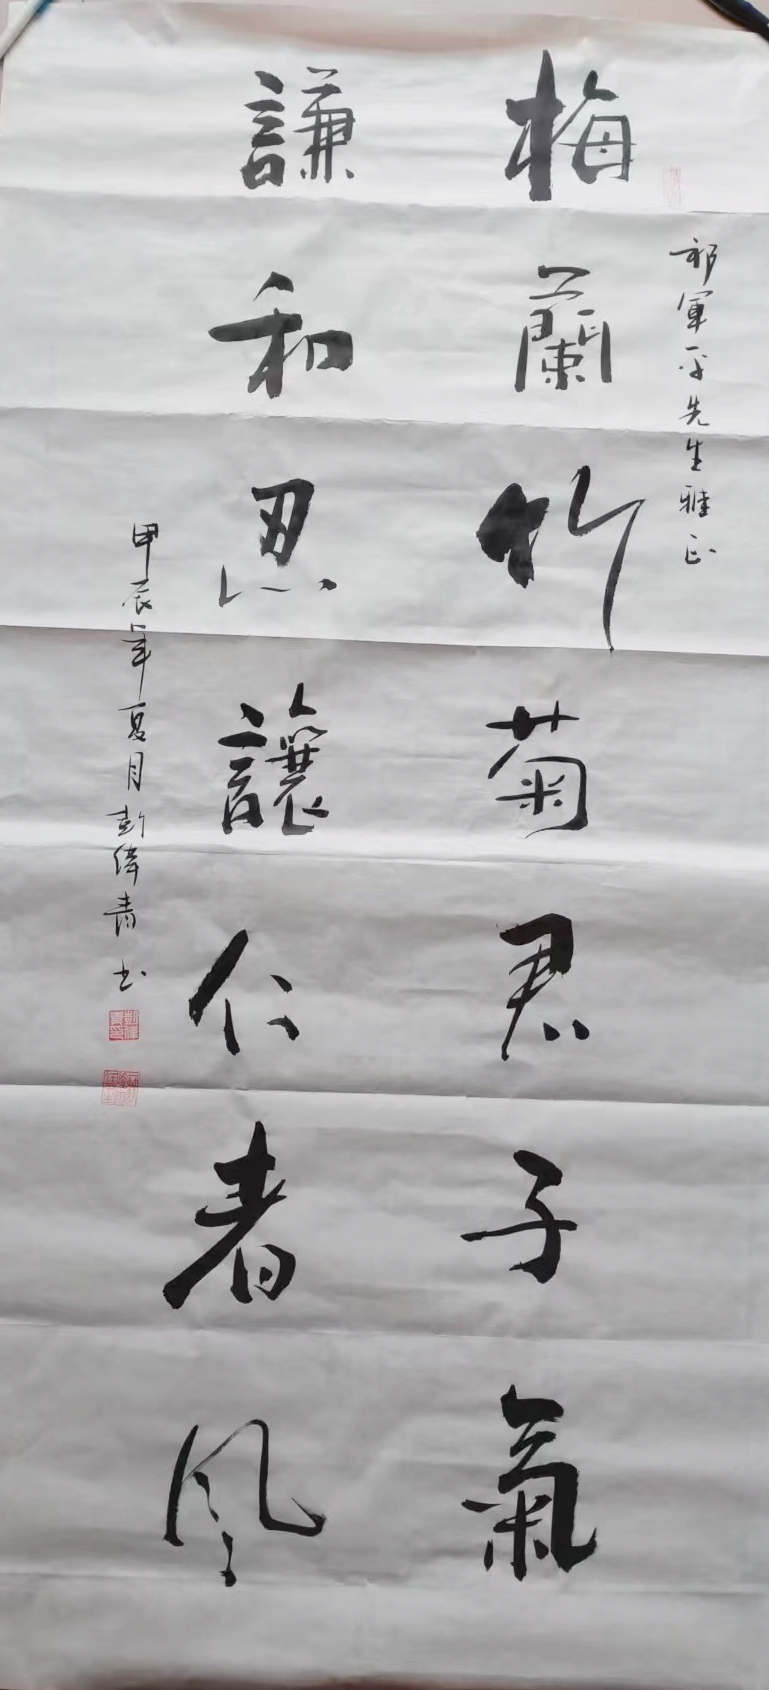 祁軍平先生雅正
梅蘭竹菊君子氣
謙和忍讓仁者風
甲辰年夏月彭偉青书